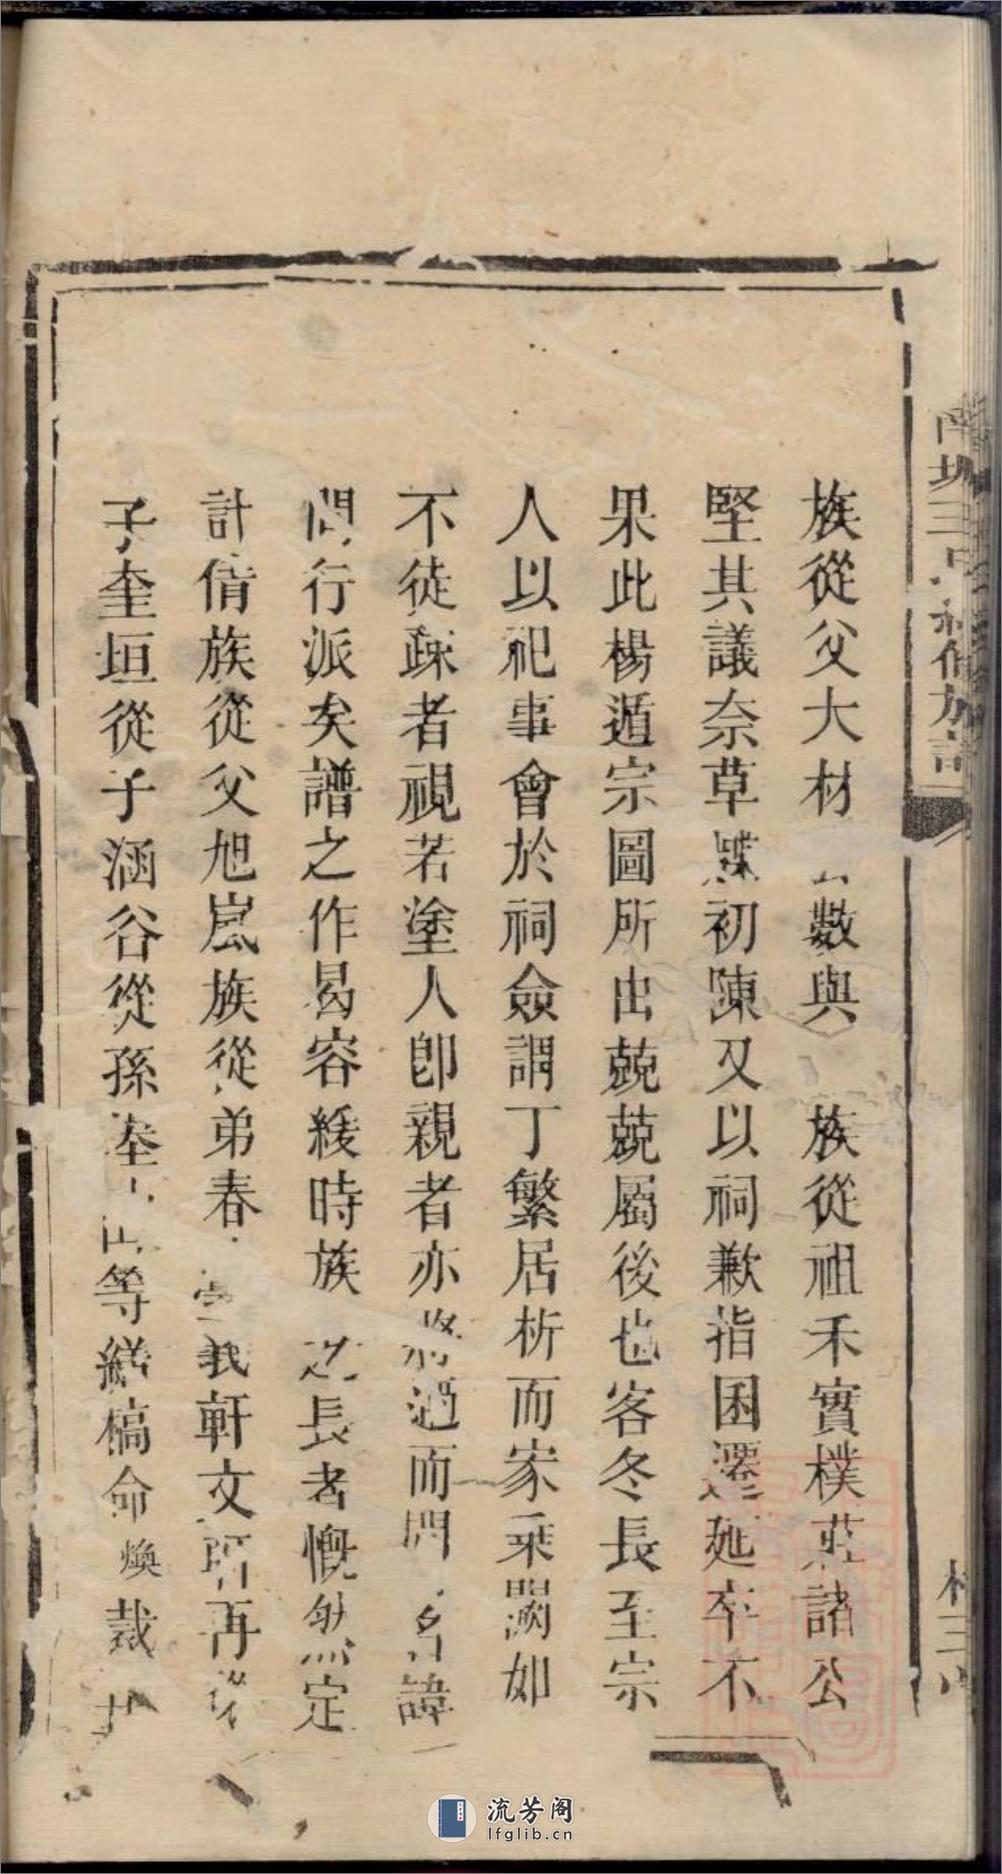 族從父大材 數與 族從祖禾實樸諸公
堅其議奈草創初陳又以祠歉指困遷延卒不
果此楊遁宗圖所出兢兢屬後也客冬長至宗
人以祀事會於祠僉謂丁繁居析而家乘闕如
不徒疎者視若塗人卽親者亦將過而問 名諱
問行派矣譜之作曷容緩時族 長者慨然定
計倩族從父旭嵐族從弟春 義軒文 再從
子奎垣從子涵谷從孫 等繕槁命煥裁
流芳阁
lfglib.cn